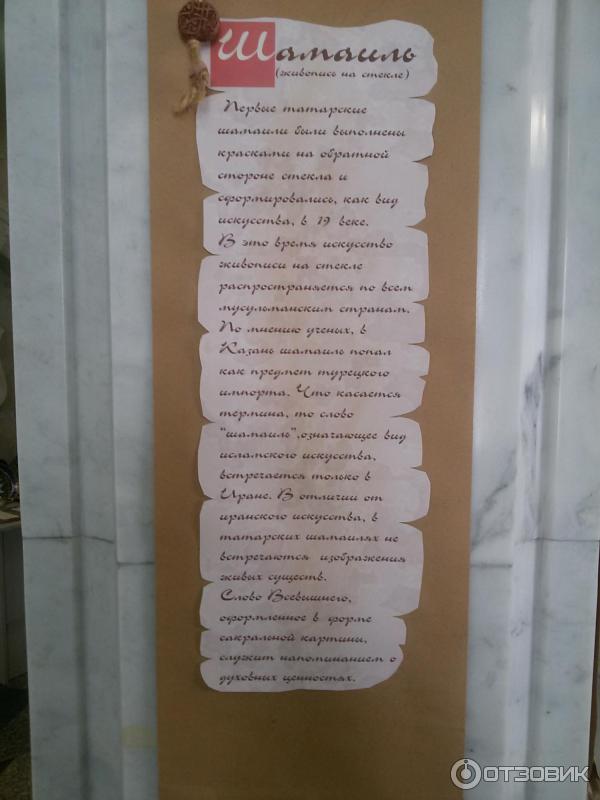 Шамаиль
(живопись на стекле)
Первые татарские
шамаили были выполнены
красками на обратной
стороне стекла и
сформировались, как вид
искусства, в 19 веке.
В это время искусство
живописи на стекле
распространяется по всем
мусульманским странам.
По мнению ученых, в
Казань шамаиль попал
как предмет турецкого
импорта. Что касается
термина, то слово
"шамаиль",означающее вид
исламского искусства,
встречается только в
Иране. В отличии от
иранского искусства, в
татарских шамаилях не
встречаются изображения
живых существ.
Слово Всевышнего,
оформленное в форме
сакральной картины,
служит напоминанием о
духовных ценностях.
ОТЗОВИК